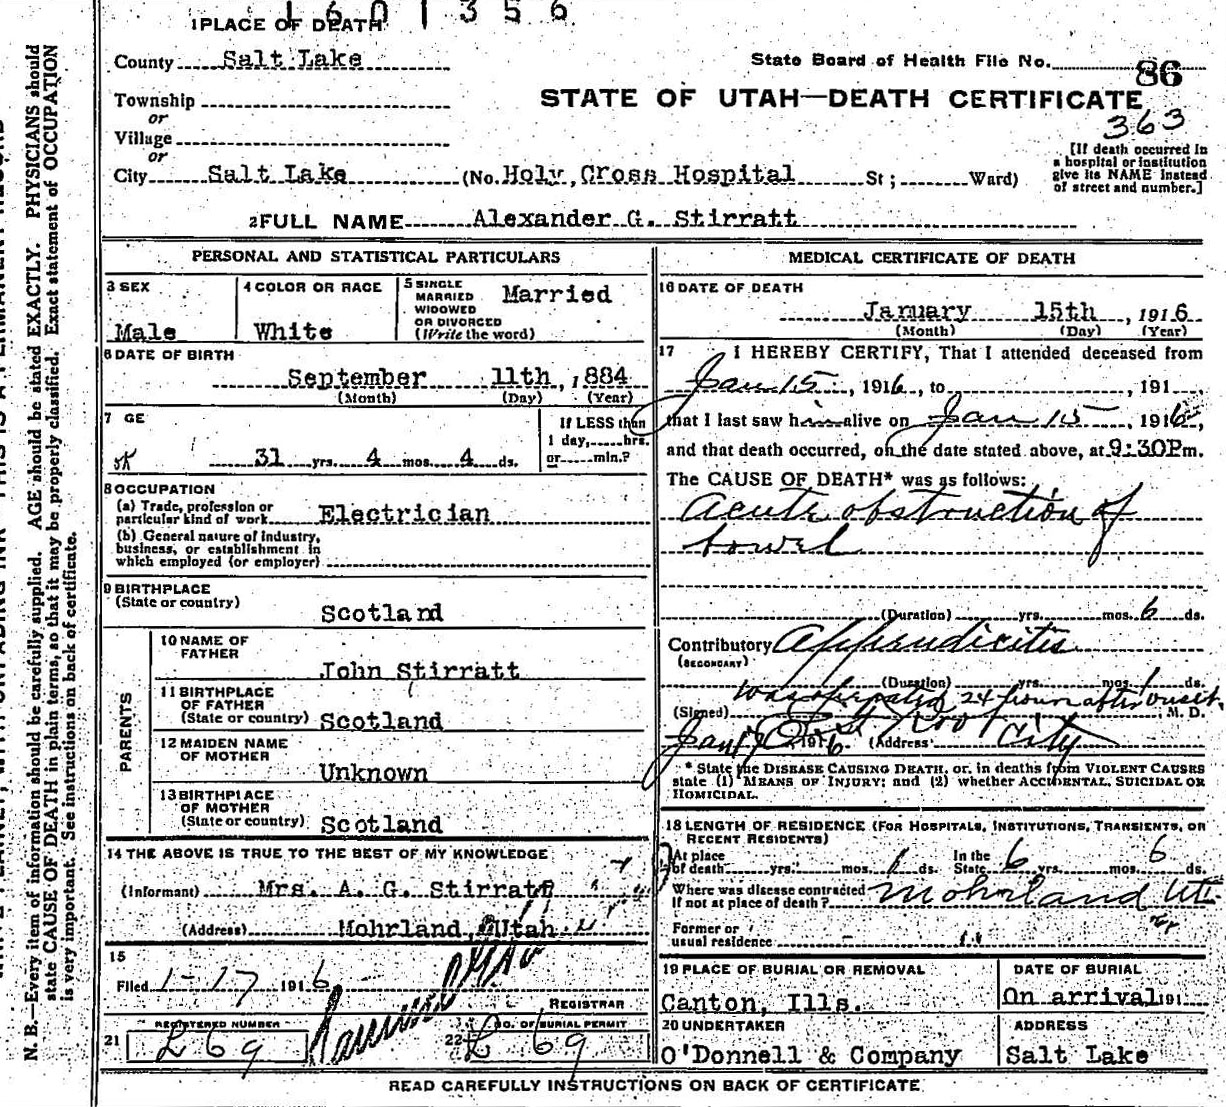 1601356
1 PLACE OF DEATH
County Salt Lake
State Board of Health File No. 86
Township
or
STATE OF UTAH—DEATH CERTIFICATE
363
Village
or
City Salt Lake (No. Holy Cross Hospital St; Ward)
[If death occurred in
a hospital or institution
give its NAME instead
of street and number.]
2 FULL NAME Alexander G. Stirratt
PERSONAL AND STATISTICAL PARTICULARS
3 SEX
Male
4 COLOR OR RACE
White
5 SINGLE
MARRIED
WIDOWED
OR DIVORCED
(Write the word)
Married
6 DATE OF BIRTH
September 11th, 1884
(Month) (Day) (Year)
7 GE
If LESS than
1 day, hrs.
or min.?
31 yrs. 4 mos. 4 ds.
8 OCCUPATION
(a) Trade, profession or
particular kind of work Electrician
(b) General nature of industry,
business, or establishment in
which employed (or employer)
9 BIRTHPLACE
(State or country)
Scotland
PARENTS
10 NAME OF
FATHER
John Stirratt
11 BIRTHPLACE
OF FATHER
(State or country) Scotland
12 MAIDEN NAME
OF MOTHER
Unknown
13 BIRTHPLACE
OF MOTHER
(State or country) Scotland
14 THE ABOVE IS TRUE TO THE BEST OF MY KNOWLEDGE
(Informant) Mrs. A. G. Stirratt
(Address) Mohrland, Utah.
15
Filed 1-17 1916
REGISTRAR
21 REGISTERED NUMBER
L 69
22 NO. OF BURIAL PERMIT
L 69
MEDICAL CERTIFICATE OF DEATH
16 DATE OF DEATH
January 15th, 1916
(Month) (Day) (Year)
17 I HEREBY CERTIFY, That I attended deceased from
Jan 15, 1916, to , 191
that I last saw him alive on Jan 15, 1916,
and that death occurred, on the date stated above, at 9:30P m.
The CAUSE OF DEATH* was as follows:
Acute obstruction of
bowel
(Duration) yrs. mos. 6 ds.
Contributory Appendicitis
(SECONDARY)
(Duration) yrs. mos. 1 ds.
was operated 24 hours after onset
(Signed) M. D.
Jan 17, 1916 (Address) City
* State the DISEASE CAUSING DEATH, or, in deaths from VIOLENT CAUSES
state (1) MEANS OF INJURY; and (2) whether ACCIDENTAL, SUICIDAL OR
HOMICIDAL.
18 LENGTH OF RESIDENCE (FOR HOSPITALS, INSTITUTIONS, TRANSIENTS, OR
RECENT RESIDENTS)
At place
of death yrs. mos. 1 ds.
In the
State 6 yrs. mos. 6 ds.
Where was disease contracted
If not at place of death? Mohrland Ut
Former or
usual residence
19 PLACE OF BURIAL OR REMOVAL
Canton, Ills.
DATE OF BURIAL
On arrival 191
20 UNDERTAKER
O'Donnell & Company
ADDRESS
Salt Lake
READ CAREFULLY INSTRUCTIONS ON BACK OF CERTIFICATE
N. B.—Every item of information should be carefully supplied. AGE should be stated EXACTLY. PHYSICIANS should
state CAUSE OF DEATH in plain terms, so that it may be properly classified. Exact statement of OCCUPATION
is very important. See instructions on back of certificate.